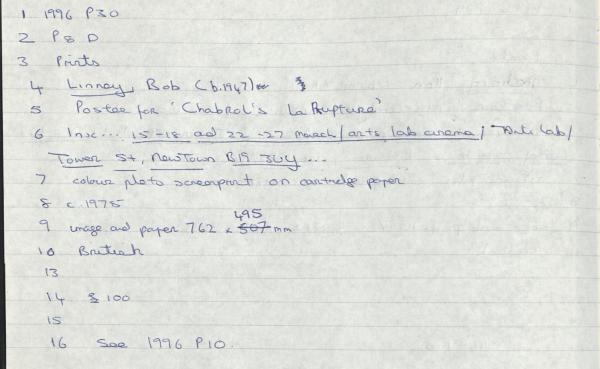 1 1996 P30
2 P8 D
3 Prints
4 Linney, Bob (b.1947)
5 Poster for 'Chabrol's La Rupture'
6 Insc... 15-18 and 22-27 March/arts lab cinema/ Arts Lab/
Tower St, Newtown B19 3UY ...
7 colour photo screenprint on cartridge paper
8 c.1975
495
9 image and paper 762 x 507 mm
10 British
13
14 £100
15
16 See 1996 P10.